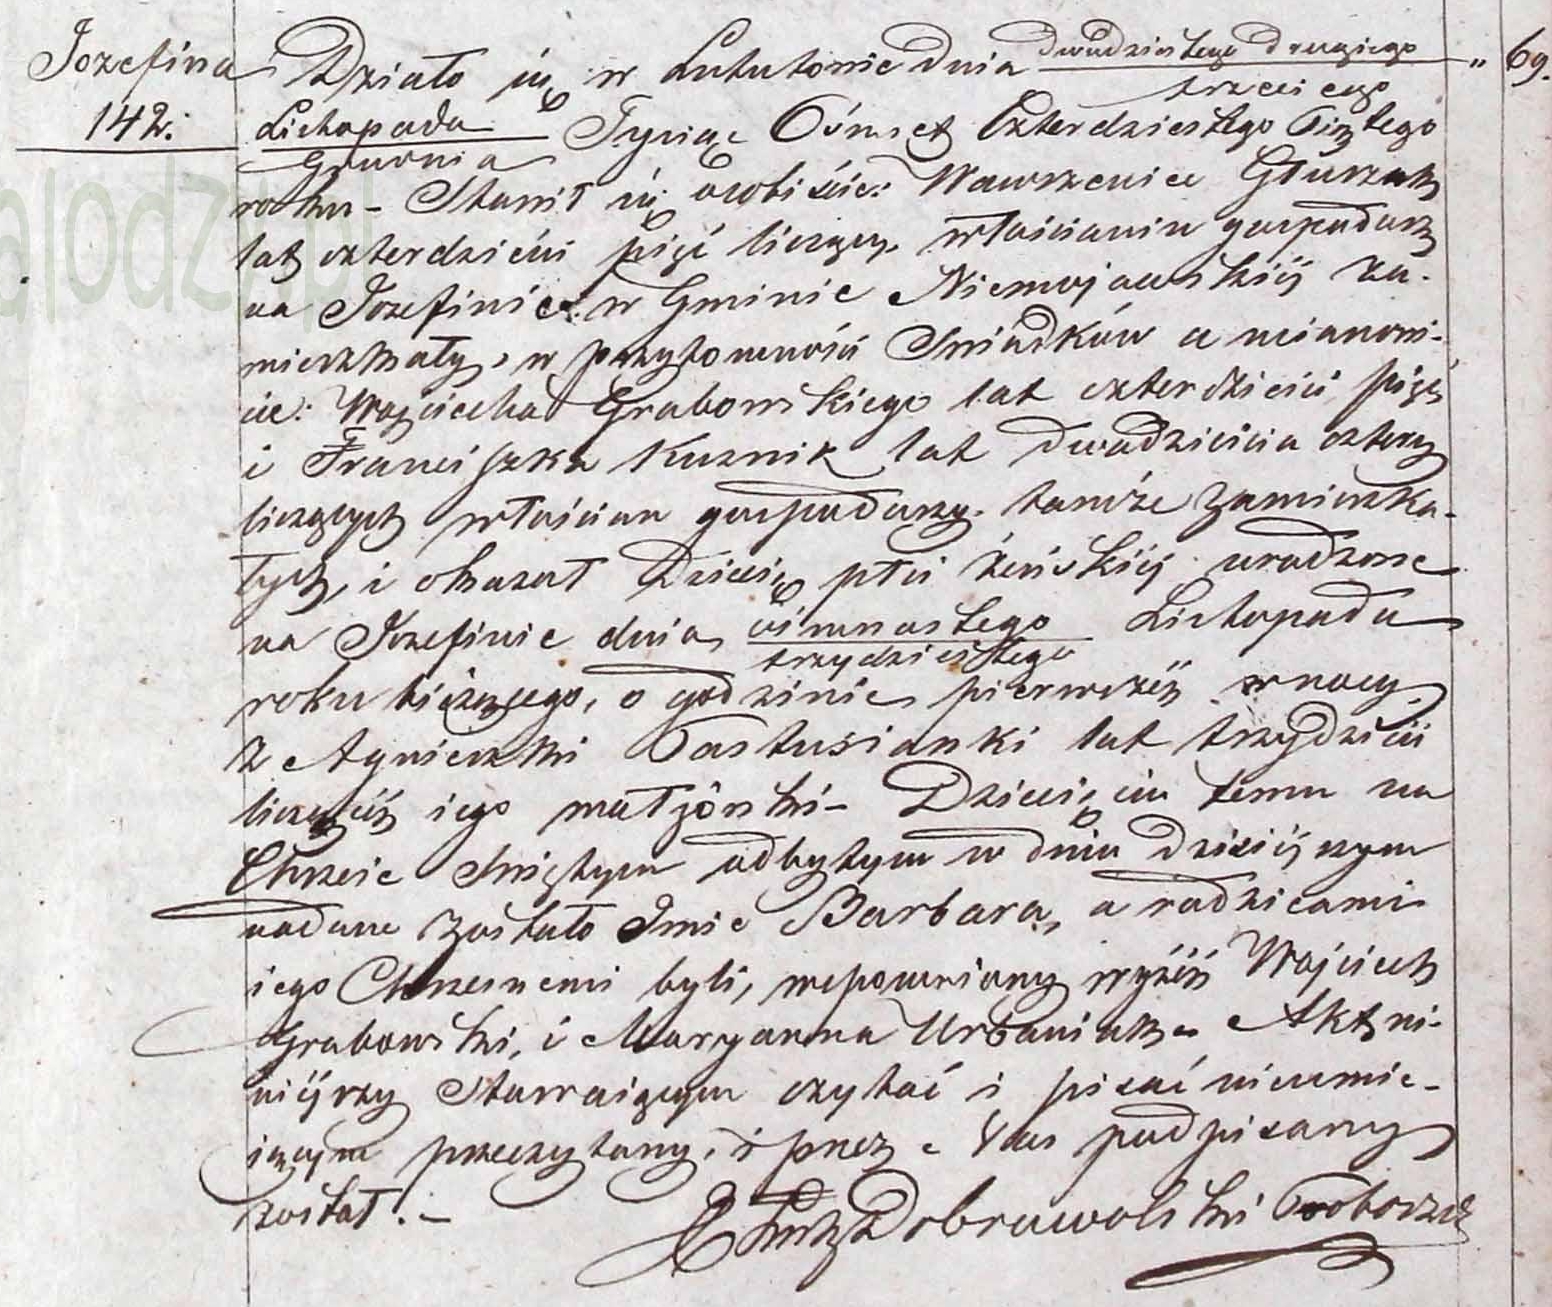 Jozefina
142.
69.
Działo się w Lututowie dnia dwudziestego drugiego "
trzeciego
Listopada Tysiąc Ośmset Czterdziestego Piątego
Grudnia
roku – Stawił się osobiście: Wawrzeniec Głuszak
lat czterdzieści pięć liczący, włościanin gospodarz
na Jozefinie w Gminie Niemojewskiéj za-
mieszkały, w przytomności Swiadków a mianowi-
cie: Wojciecha Grabowskiego lat czterdzieści pięć
i Franciszka Kuznik lat dwadzieścia cztery
liczących włościan gospodarzy tamże zamieszka-
łych, i okazał Dziecię płci żeńskiéj urodzone
na Jozefinie dnia ośmnastego Listopada
trzydziestego
roku bieżącego, o godzinie pierwszéj w nocy
z Agnieszki Pastusianki lat trzydzieści
liczącéj iego małżonki – Dziecięciu temu na
Chrzcie Swiętym odbytym w dniu dzisiéjszym
nadane zostało Imie Barbara, a rodzicami
iego Chrzesnemi byli, wspomniany wyżéj Wojciech
Grabowski, i Maryanna Urbaniak – Akt ni-
niéjszy Stawaiącym czytać i pisać nieumie-
iącym przeczytany, i przez Nas podpisany
został. –
X Dobrowolski Proboszcz
alodzi.pl